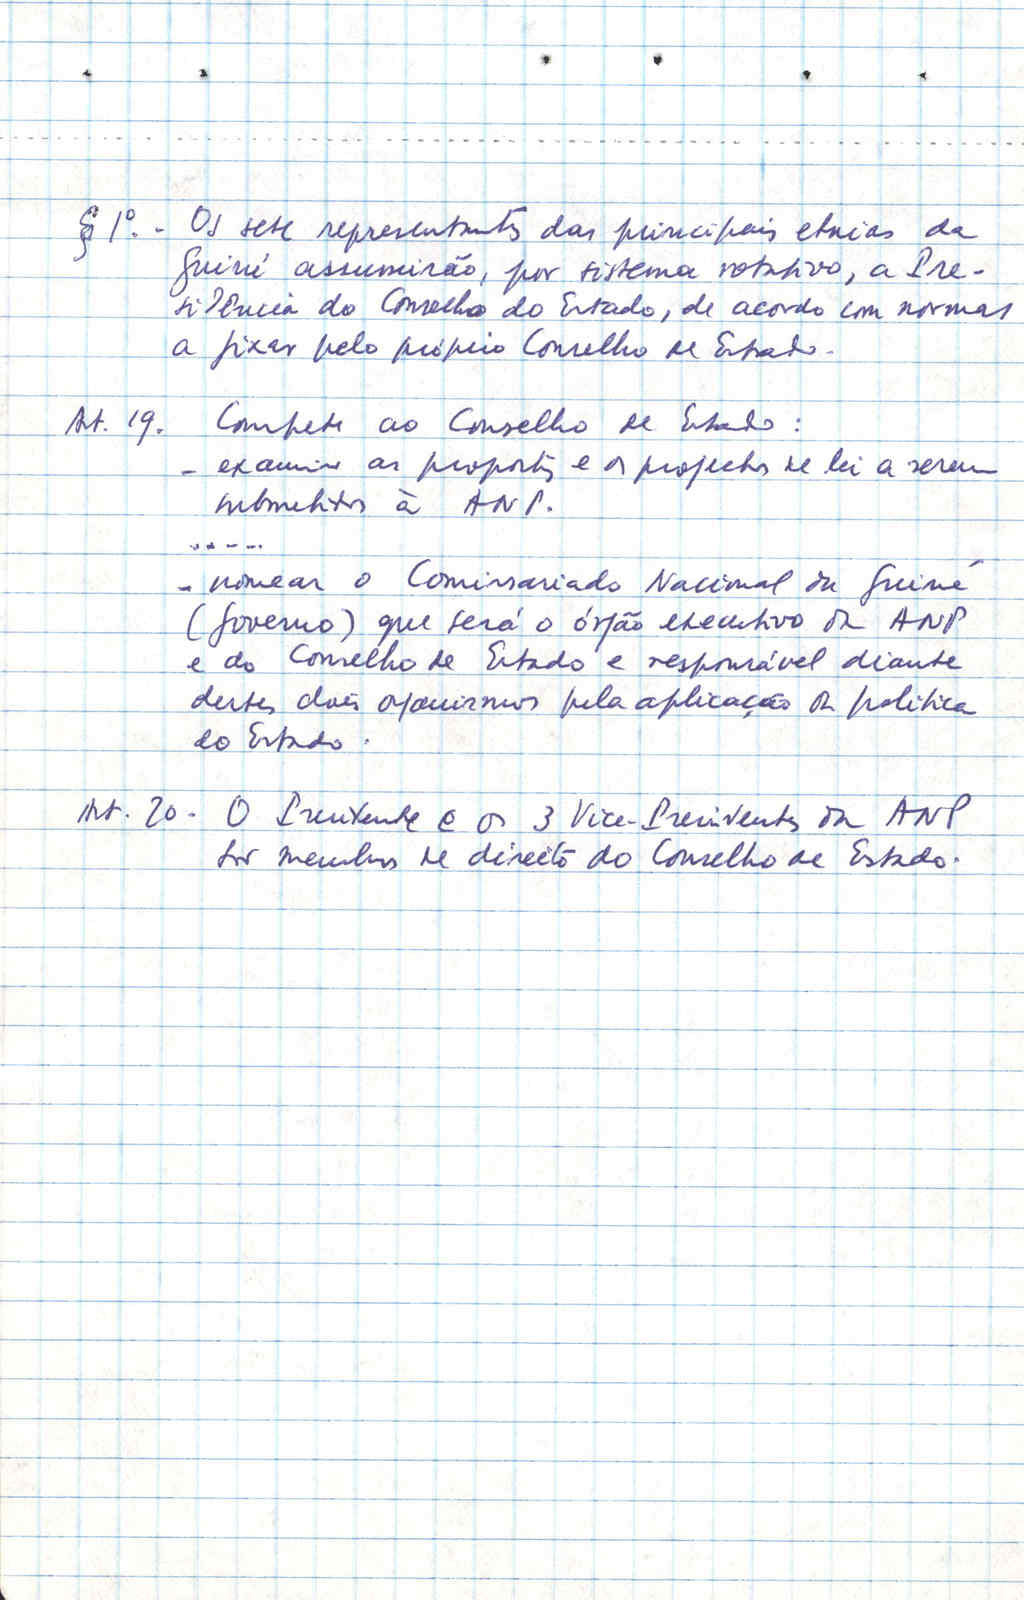 § 1º. - Os sete representantes das principais etnias da
Guiné assumirão, por sistema rotativo, a Pre-
sidência do Conselho do Estado, de acordo com normas
a fixar pelo próprio Conselho de Estado.
Art. 19. Compete ao Conselho de Estado:
- examinar as propostas e os projectos de lei a serem
submetidos à ANP.
.....
- nomear o Comissariado Nacional da Guiné
(Governo) que será o órgão executivo da ANP
e do Conselho de Estado e responsável diante
destes dois organismos pela aplicação da política
do Estado.
Art. 20. O Presidente e os 3 Vice-Presidentes da ANP
são membros de direito do Conselho de Estado.